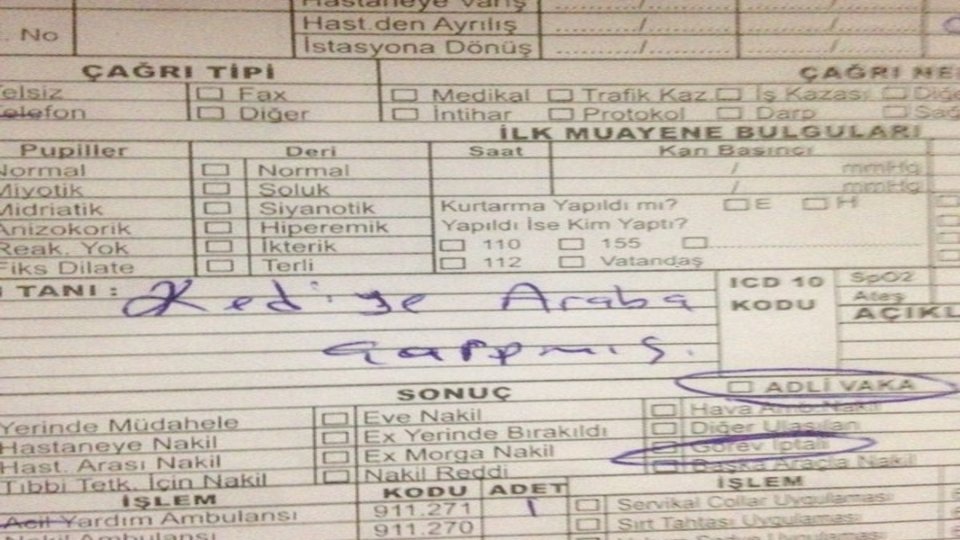 Hastaneye Varış
Hast.den Ayrılış ......../........ ......../........
. No
İstasyona Dönüş ......../........ ......../........
ÇAĞRI TİPİ ÇAĞRI NE
elsiz Fax Medikal Trafik Kaz. İş Kazası Diğe
elefon Diğer İntihar Protokol Darp Sağ
İLK MUAYENE BULGULARI
Pupiller Deri Saat Kan Basıncı
Normal Normal / mmHg
Miyotik Soluk / mmHg
Midriatik Siyanotik Kurtarma Yapıldı mı? E H
Anizokorik Hiperemik Yapıldı İse Kim Yaptı?
Reak. Yok İkterik 110 155
Fiks Dilate Terli 112 Vatandaş
TANI : Kediye Araba ICD 10 SpO2
KODU Ateş
AÇIKL
çarpmış.
SONUÇ ADLİ VAKA
Yerinde Müdahele Eve Nakil Hava Amb. Nakil
Hastaneye Nakil Ex Yerinde Bırakıldı Diğer Ulaşılan
Hast. Arası Nakil Ex Morga Nakil Görev İptali
Tıbbi Tetk. İçin Nakil Nakil Reddi Başka Araçla Nakil
İŞLEM KODU ADET İŞLEM
Acil Yardım Ambulansı 911.271 1 Servikal Collar Uygulaması
Nakil Ambulansı 911.270 Sırt Tahtası Uygulaması